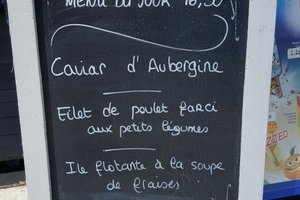 MENU DU JOUR 16,50
Caviar d'Aubergine
Filet de poulet farci
aux petits légumes
Ile flotante à la soupe
de fraises